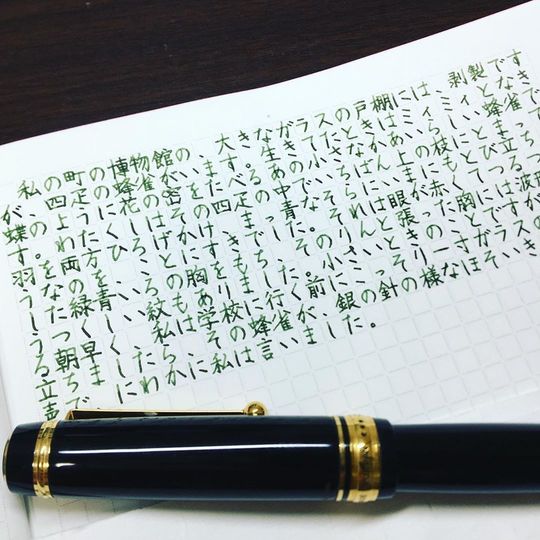 私の町の博物館の、大きなガラスの戸棚には、剥製です
が、四疋の蜂雀がいます。生きてたときはミィミィとなき
蝶のように花の蜜をたべるあの小さなかあいらしい蜂雀で
す。わたくしはその四疋の中でいちばん上の枝にとまって
羽を両方ひろげかけまっ青なそらにいまにもとび立ちそ
うなのを、ことにすきでした。それは眼が赤くてつるつ
した緑青いろの胸をもち、そのりんと張った胸には波形
うつくしい紋もありました。小さいときのことですが
る朝早く、私は学校に行く前にこっそり一寸ガラスの
立ちましたら、その蜂雀が、銀の針の様なほそいき
声で、にわかに私は言いました。